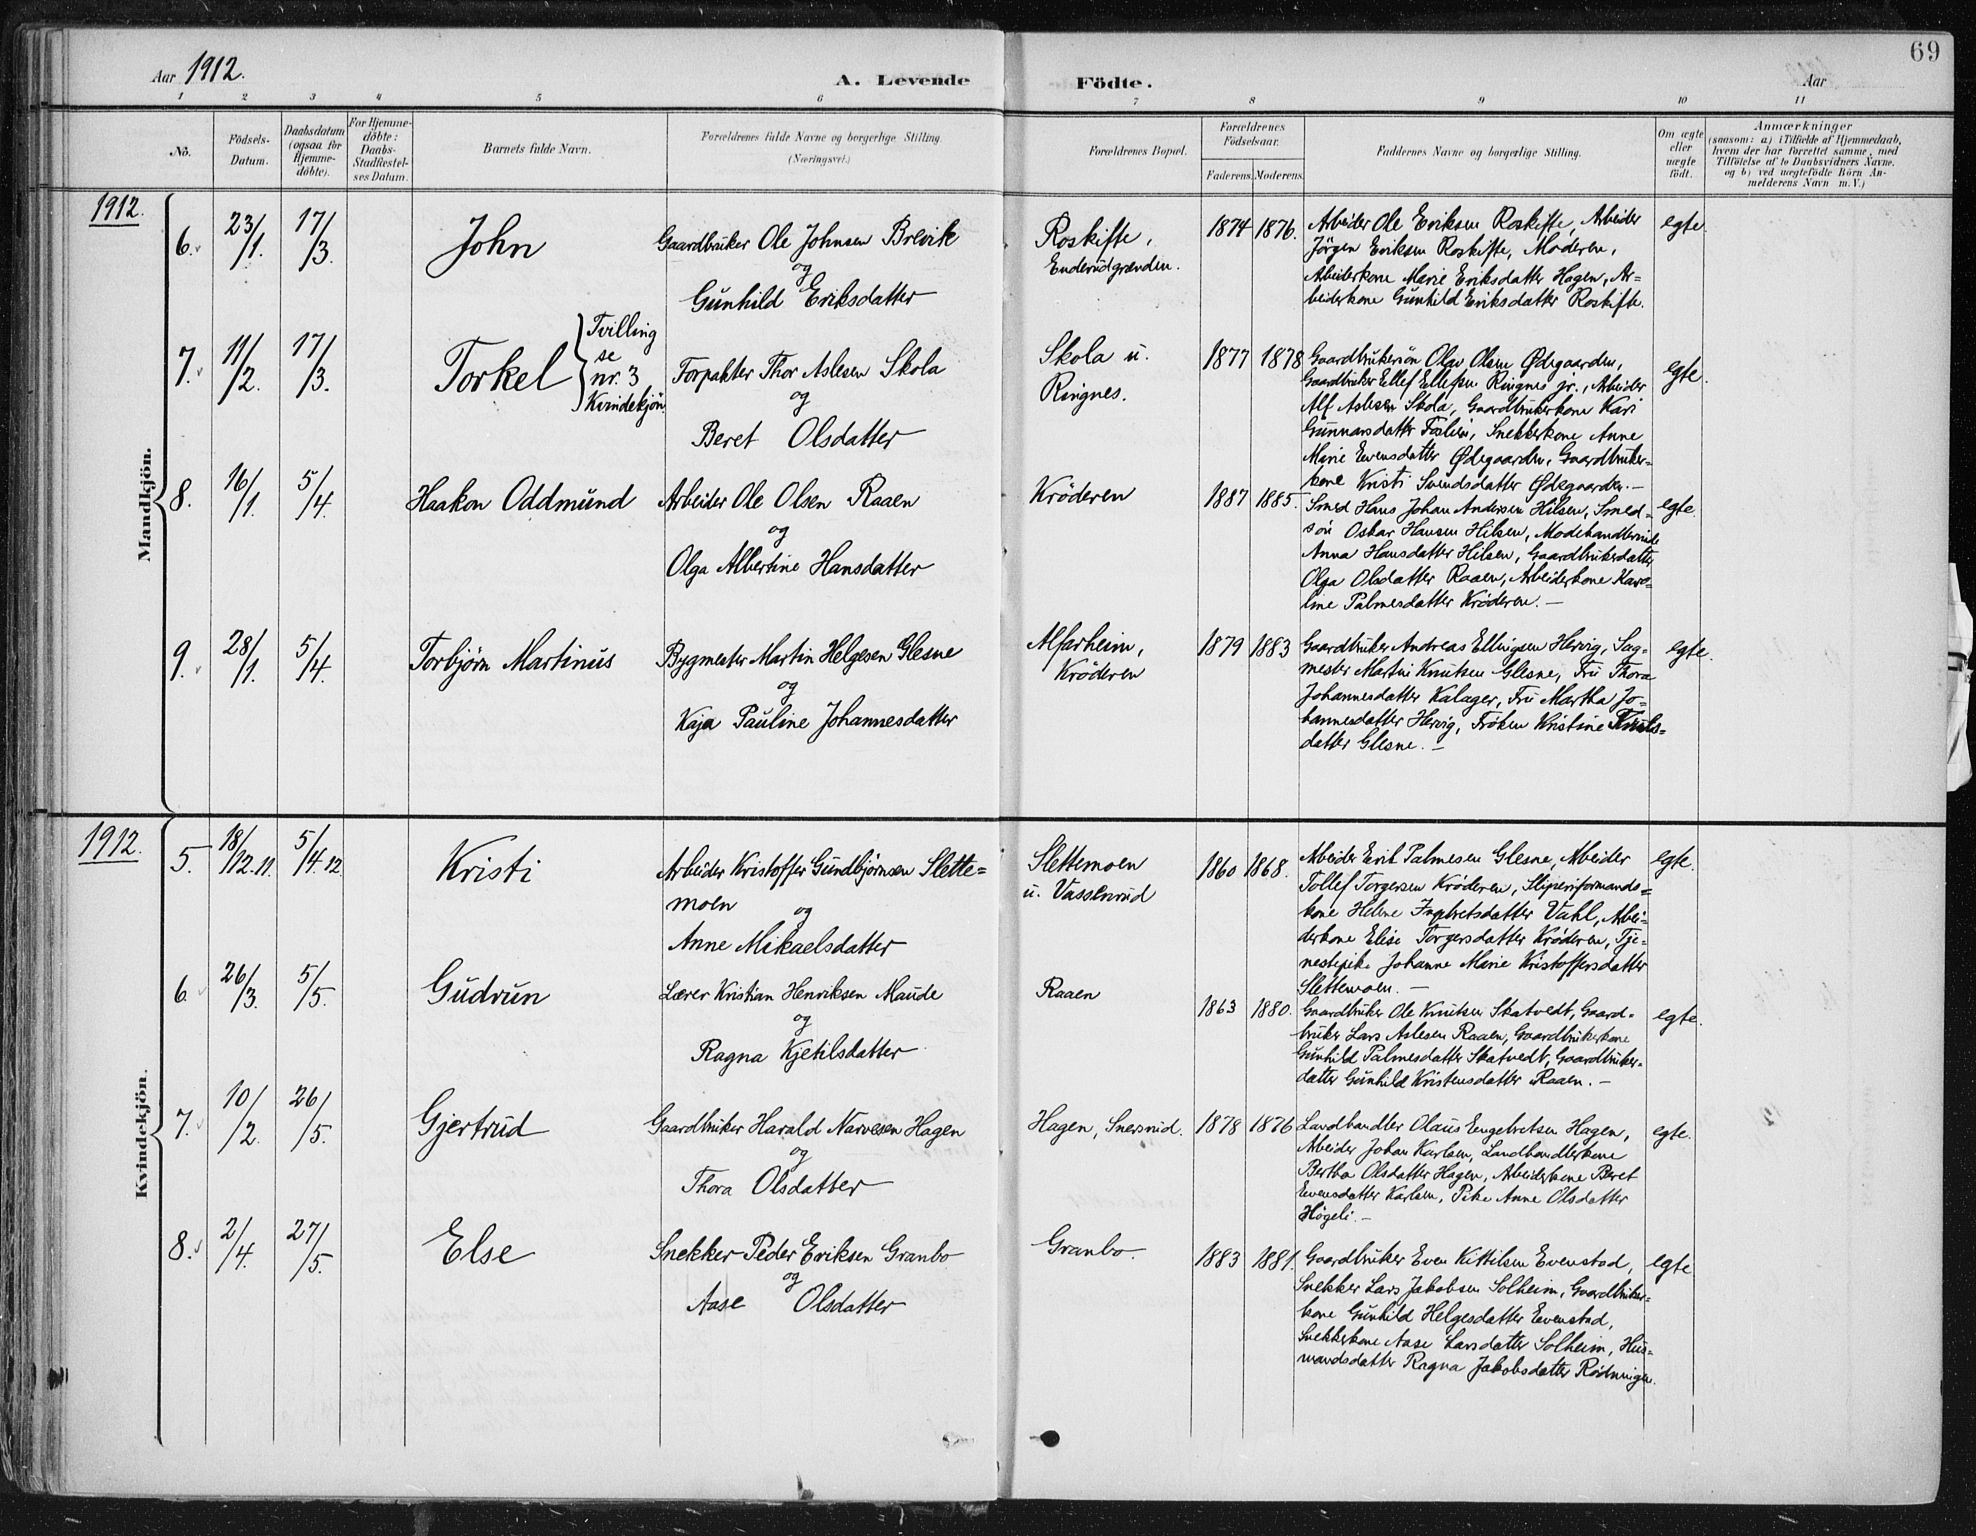 69
Aar 1912. A. Levende Födte. Aar
1 2 3 4 5 6 7 8 9 10 11
No.
Födsels-Datum.
Daabsdatum (ogsaa for Hjemme-döbte).
For Hjemme-döbte: Daabs-Stadfæstel-ses Datum.
Barnets fulde Navn.
Forældrenes fulde Navne og borgerlige Stilling.
(Næringsvei.)
Forældrenes Bopæl.
Forældrenes Födselsaar.
Faderens. Moderens.
Faddernes Navne og borgerlige Stilling.
Om ægte eller uægte födt.
Anmærkninger
(saasom: a) i Tilfælde af Hjemmedaab,
hvem der har forrettet samme, med
Tilföielse af to Daabsvidners Navne.
og b) ved uægtefödte Börn An-
melderens Navn m. V.)
Mandkjön.
1912.
6. 23/1. 17/3. John
Gaardbruker Ole Johnsen Brevik
og
Gunhild Eriksdatter
Roskifte,
Enderudgrænden.
1874 1876.
Arbeider Ole Eriksen Roskifte, Arbeider
Jörgen Eriksen Roskifte, Moderen,
Arbeiderkone Marie Eriksdatter Hagen, Ar-
beiderkone Gunhild Eriksdatter Roskifte.
egte.
7. 11/2. 17/3. Torkel
Tvilling
se
nr. 3
Kvindekjön
Forpakter Thor Aslesen Skola
og
Beret Olsdatter
Skola u.
Ringnes.
1877 1878
Gaardbrukersön Olav Olsen Ødegaarden,
Gaardbruker Ellef Ellefsen Ringnes jr., Arbeider
Alf Aslesen Skola, Gaardbrukerkone Kari
Gunnarsdatter Foslien, Snekkerkone Anne
Marie Evensdatter Ødegaarden, Gaardbruker-
kone Kristi Svendsdatter Ødegaarden. –
egte.
8. 16/1. 5/4. Haakon Oddmund
Arbeider Ole Olsen Raaen
og
Olga Albertine Hansdatter
Kröderen
1887 1885.
Smed Hans Johan Andersen Hilsen, Smed-
sön Oskar Hansen Hilsen, Modehandlerinde
Anna Hansdatter Hilsen, Gaardbrukerdatter
Olga Olsdatter Raaen, Arbeiderkone Karo-
line Palmesdatter Kröderen. –
egte.
9. 28/1. 5/4. Torbjörn Martinus
Bygmester Martin Helgesen Glesne
og
Kaja Pauline Johannesdatter
Alfarheim,
Kröderen
1879 1883
Gaardbruker Andreas Ellingsen Hervig, Sag-
mester Martin Knutsen Glesne, Fru Thora
Johannesdatter Kalager, Fru Martha Jo-
hannesdatter Hervig, Fröken Kristine Knuts-
datter Glesne. –
egte.
Kvindekjön.
1912.
5. 18/12.11. 5/4.12 Kristi
Arbeider Kristoffer Gundbjörnsen Slette-
moen
og
Anne Mikaelsdatter
Slettemoen
u. Vassenrud
1860 1868.
Arbeider Erik Palmesen Glesne, Arbeider
Tollef Torgersen Kröderen, Sliperiformands-
kone Helene Ingbretsdatter Vahl, Arbei-
derkone Elise Torgersdatter Kröderen, Tje-
nestepike Johanne Marie Kristoffersdatter
Slettemoen. –
egte.
6. 26/3. 5/5. Gudrun
Lærer Kristian Henriksen Maude
og
Ragna Kjetilsdatter
Raaen
1863 1880.
Gaardbruker Ole Knutsen Skatvedt, Gaard-
bruker Lars Aslesen Raaen, Gaardbrukerkone
Gunhild Palmesdatter Skatvedt, Gaardbruker-
datter Gunhild Kristensdatter Raaen. –
egte.
7. 10/2. 26/5. Gjertrud
Gaardbruker Harald Narvesen Hagen
og
Thora Olsdatter
Hagen, Snersrud.
1878 1876
Landhandler Olaus Engebretsen Hagen,
Arbeider Johan Karlsen, Landhandlerkone
Bertha Olsdatter Hagen, Arbeiderkone Beret
Evensdatter Karlsen, Pike Anne Olsdatter
Högeli. –
egte.
8. 2/4. 27/5. Else
Snekker Peder Eriksen Granbo
og
Aase Olsdatter
Granbo.
1883 1881.
Gaardbruker Even Kittilsen Evenstad,
Snekker Lars Jakobsen Solheim, Gaardbruker-
kone Gunhild Helgesdatter Evenstad,
Snekkerkone Aase Larsdatter Solheim, Hus-
mandsdatter Ragna Jakobsdatter Rödningen.
egte